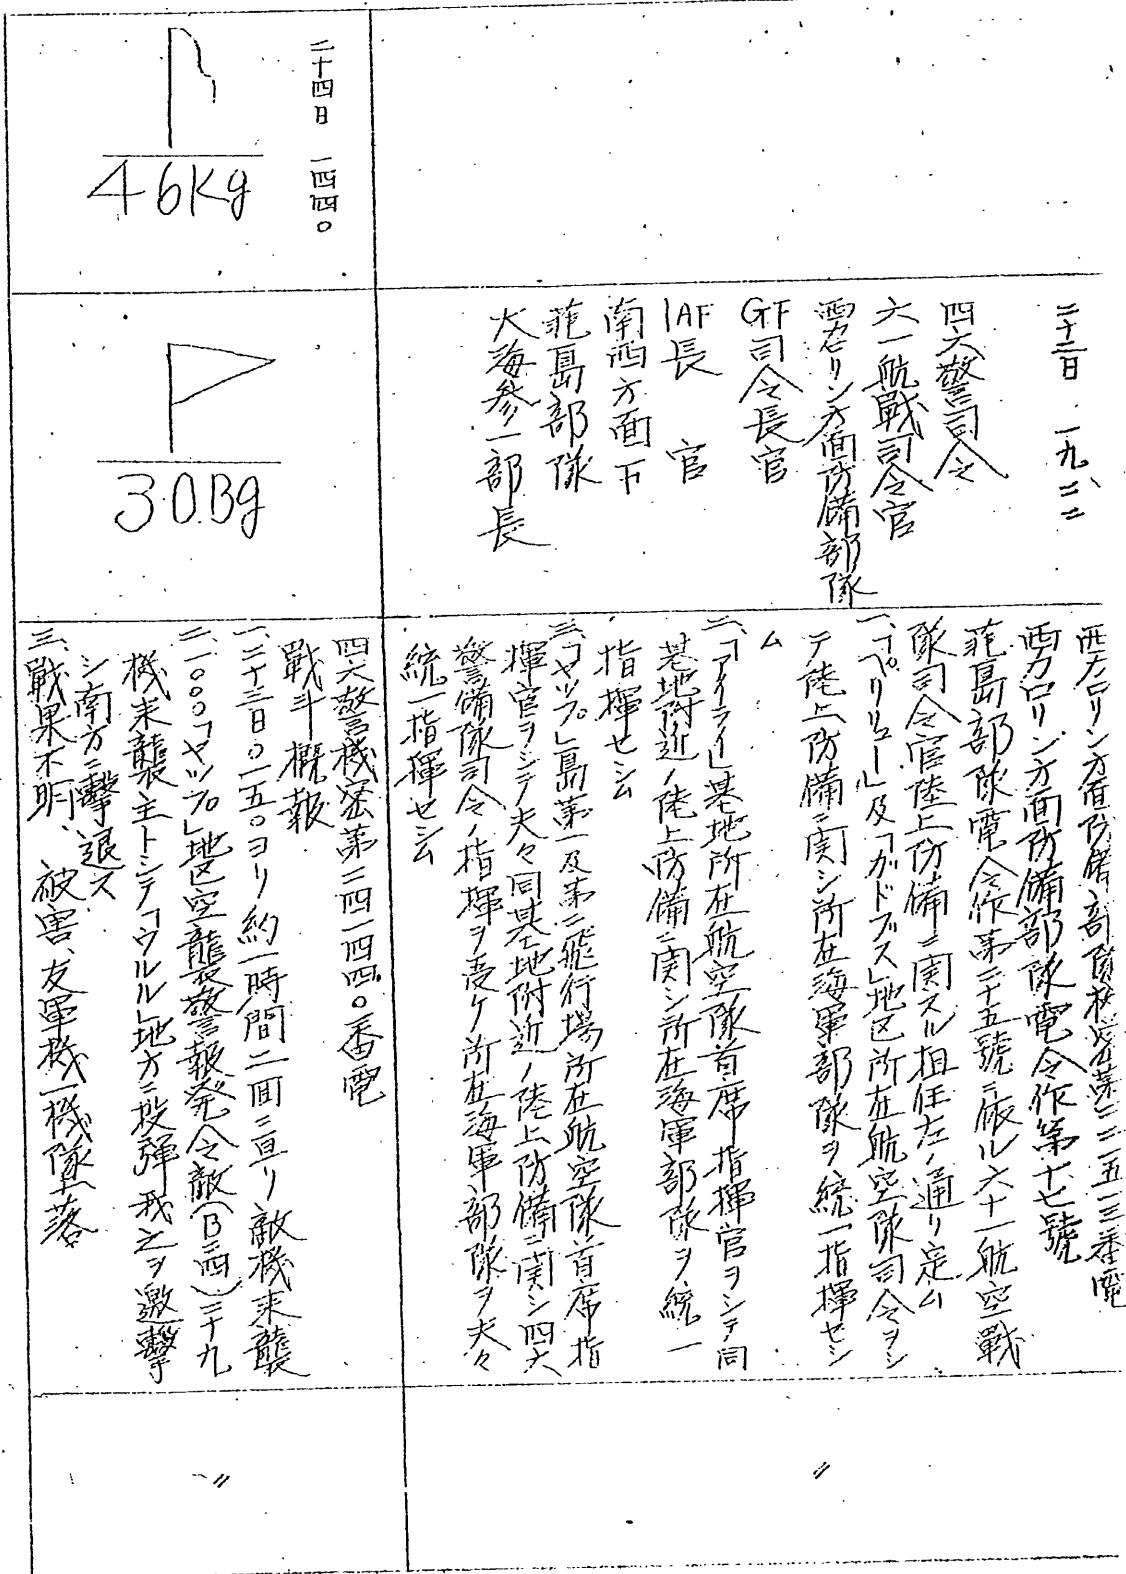 二十二日 一九二二
四六警司令
六一航戦司令官
西カロリン方面防備部隊
GF司令長官
1AF長官
南西方面下
菲島部隊
大海参一部長
西カロリン方面防備部隊機密第二二一五一三番電
西カロリン方面防備部隊電令作第十七號
菲島部隊電令作第二十五號ニ依ル六十一航空戰
隊司令官陸上防備ニ関スル担任左ノ通リ定ム
一、「ペリリュー」及「ガドブス」地区所在航空隊司令ヲシ
テ陸上防備ニ関シ所在海軍部隊ヲ統一指揮セシ
ム
二、「アイライ」基地所在航空隊首席指揮官ヲシテ同
基地附近ノ陸上防備ニ関シ所在海軍部隊ヲ統一
指揮セシム
三、「ヤップ」島第一及第二飛行場所在航空隊首席指
揮官ヲシテ夫々同基地附近ノ陸上防備ニ関シ四六
警備隊司令ノ指揮ヲ受ケ所在海軍部隊ヲ夫々
統一指揮セシム
〃
二十四日 一四四〇
46Kg
30.Bg
四六警機密第二四一四四〇番電
戦斗概報
一、二十三日〇一五〇ヨリ約一時間二回ニ亘リ敵機来襲
二、一〇〇〇「ヤップ」地区空襲警報発令敵(B二四)二十九
機来襲主トシテ「ウルル」地方ニ投弾我之ヲ邀撃
シ南方ニ撃退ス
三、戰果不明、被害、友軍機一機墜落
〃